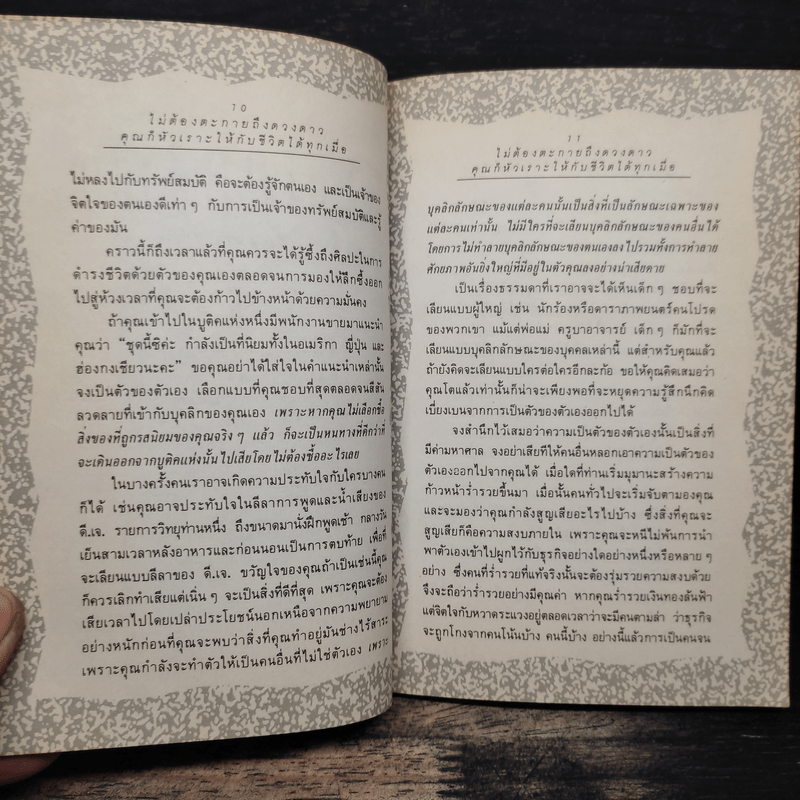 10
ไม่ต้องตะกายถึงดวงดาว
คุณก็หัวเราะให้กับชีวิตได้ทุกเมื่อ
ไม่หลงไปกับทรัพย์สมบัติ คือจะต้องรู้จักตนเอง และเป็นเจ้าของ
จิตใจของตนเองดีเท่า ๆ กับการเป็นเจ้าของทรัพย์สมบัติและรู้
ค่าของมัน
คราวนี้ก็ถึงเวลาแล้วที่คุณควรจะได้รู้ซึ้งถึงศิลปะในการ
ดำรงชีวิตด้วยตัวของคุณเองตลอดจนการมองให้ลึกซึ้งออก
ไปสู่ห้วงเวลาที่คุณจะต้องก้าวไปข้างหน้าด้วยความมั่นคง
ถ้าคุณเข้าไปในบูติคแห่งหนึ่งมีพนักงานขายมาแนะนำ
คุณว่า “ชุดนี้ซิค่ะ กำลังเป็นที่นิยมทั้งในอเมริกา ญี่ปุ่น และ
ฮ่องกงเชียวนะคะ” ขอคุณอย่าได้ใส่ใจในคำแนะนำเหล่านั้น
จงเป็นตัวของตัวเอง เลือกแบบที่คุณชอบที่สุดตลอดจนสีสัน
ลวดลายที่เข้ากับบุคลิกของคุณเอง เพราะหากคุณไม่เลือกซื้อ
สิ่งของที่ถูกรสนิยมของคุณจริง ๆ แล้ว ก็จะเป็นหนทางที่ดีกว่าที่
จะเดินออกจากบูติคแห่งนั้นไปเสียโดยไม่ต้องซื้ออะไรเลย
ในบางครั้งคนเราอาจเกิดความประทับใจกับใครบางคน
ก็ได้ เช่นคุณอาจประทับใจในลีลาการพูดและน้ำเสียงของ
ดี.เจ. รายการวิทยุท่านหนึ่ง ถึงขนาดมานั่งฝึกพูดเช้า กลางวัน
เย็นสามเวลาหลังอาหารและก่อนนอนเป็นการตบท้าย เพื่อที่
จะเลียนแบบลีลาของ ดี.เจ. ขวัญใจของคุณถ้าเป็นเช่นนี้คุณ
ก็ควรเลิกทำเสียแต่เนิ่น ๆ จะเป็นสิ่งที่ดีที่สุด เพราะคุณจะต้อง
เสียเวลาไปโดยเปล่าประโยชน์นอกเหนือจากความพยายาม
อย่างหนักก่อนที่คุณจะพบว่าสิ่งที่คุณทำอยู่มันช่างไร้สาระ
เพราะคุณกำลังจะทำตัวให้เป็นคนอื่นที่ไม่ใช่ตัวเอง เพราะ
11
ไม่ต้องตะกายถึงดวงดาว
คุณก็หัวเราะให้กับชีวิตได้ทุกเมื่อ
บุคลิกลักษณะของแต่ละคนนั้นเป็นสิ่งที่เป็นลักษณะเฉพาะของ
แต่ละคนเท่านั้น ไม่มีใครที่จะเลียนบุคลิกลักษณะของคนอื่นได้
โดยการไม่ทำลายบุคลิกลักษณะของตนเองลงไปรวมทั้งการทำลาย
ศักยภาพอันยิ่งใหญ่ที่มีอยู่ในตัวคุณลงอย่างน่าเสียดาย
เป็นเรื่องธรรมดาที่เราอาจจะได้เห็นเด็ก ๆ ชอบที่จะ
เลียนแบบผู้ใหญ่ เช่น นักร้องหรือดาราภาพยนตร์คนโปรด
ของพวกเขา แม้แต่พ่อแม่ ครูบาอาจารย์ เด็ก ๆ ก็มักที่จะ
เลียนแบบบุคลิกลักษณะของบุคคลเหล่านี้ แต่สำหรับคุณแล้ว
ถ้ายังคิดจะเลียนแบบใครต่อใครอีกละก้อ ขอให้คุณคิดเสมอว่า
คุณโตแล้วเท่านั้นก็น่าจะเพียงพอที่จะหยุดความรู้สึกนึกคิด
เบี่ยงเบนจากการเป็นตัวของตัวเองออกไปได้
จงสำนึกไว้เสมอว่าความเป็นตัวของตัวเองนั้นเป็นสิ่งที่
มีค่ามหาศาล จงอย่าเสียทีให้คนอื่นหลอกเอาความเป็นตัวของ
ตัวเองออกไปจากคุณได้ เมื่อใดที่ท่านเริ่มมุมานะสร้างความ
ก้าวหน้าร่ำรวยขึ้นมา เมื่อนั้นคนทั่วไปจะเริ่มจับตามองคุณ
และจะมองว่าคุณกำลังสูญเสียอะไรไปบ้าง ซึ่งสิ่งที่คุณจะ
สูญเสียก็คือความสงบภายใน เพราะคุณจะหนีไม่พ้นการนำ
พาตัวเองเข้าไปผูกไว้กับธุรกิจอย่างใดอย่างหนึ่งหรือหลาย ๆ
อย่าง ซึ่งคนที่ร่ำรวยที่แท้จริงนั้นจะต้องรุ่มรวยความสงบด้วย
จึงจะถือว่าร่ำรวยอย่างมีคุณค่า หากคุณร่ำรวยเงินทองล้นฟ้า
แต่จิตใจกับหวาดระแวงอยู่ตลอดเวลาว่าจะมีคนตามล่า ว่าธุรกิจ
จะถูกโกงจากคนโน้นบ้าง คนนี้บ้าง อย่างนี้แล้วการเป็นคนจน